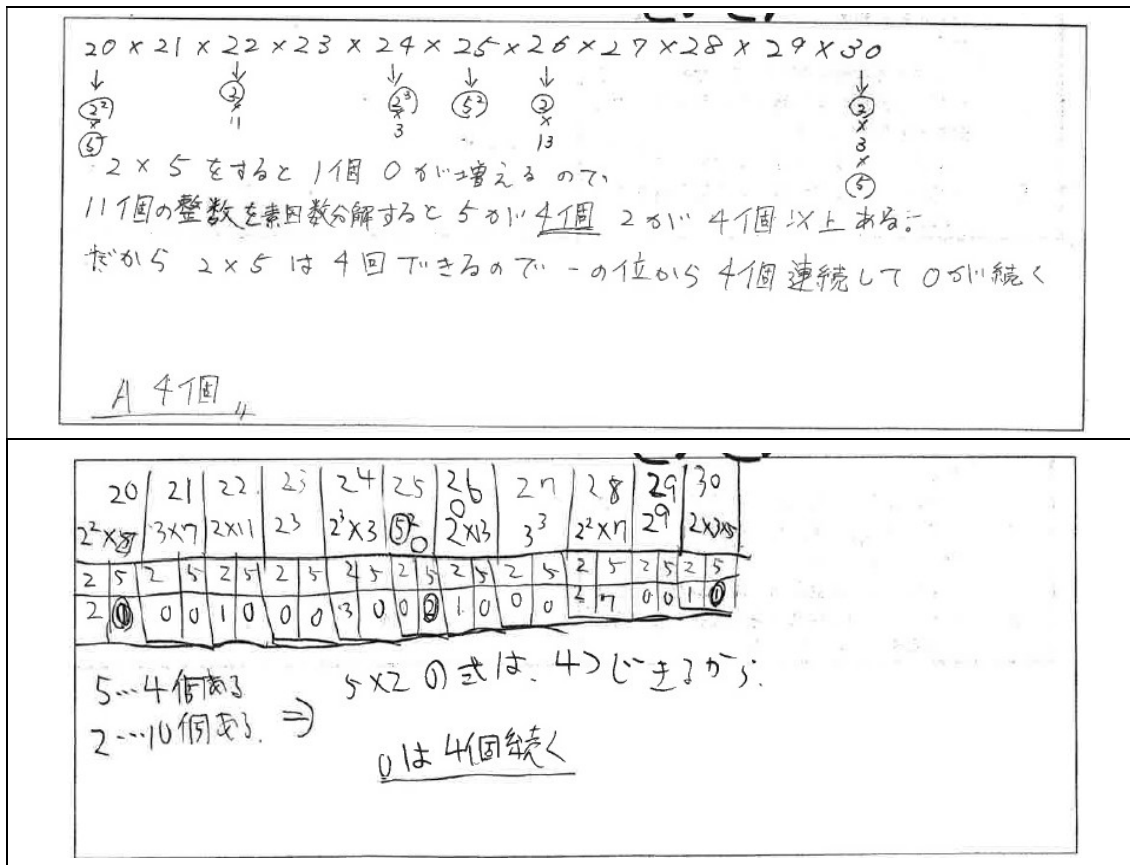 20 × 21 × 22 × 23 × 24 × 25 × 26 × 27 × 28 × 29 × 30
↓ ↓ ↓ ↓ ↓ ↓
2² × 5 2 × 11 2³ × 3 5² 2 × 13 2 × 3 × 5
2 × 5 をすると 1個 0 が増えるので、
11個の整数を素因数分解すると 5 が 4個 2 が 4個以上ある。
だから 2 × 5 は 4回できるので 一の位から 4個連続して 0 が続く
A 4個
20 21 22 23 24 25 26 27 28 29 30
2²×5 3×7 2×11 23 2³×3 5² 2×13 3³ 2²×7 29 2×3×5
2 5 2 5 2 5 2 5 2 5 2 5 2 5 2 5 2 5 2 5 2 5
2 1 0 0 1 0 0 0 3 0 0 2 1 0 0 0 2 7 0 0 1 1
5…4個ある
2…10個ある ⇒ 5×2 の式は、4つできるから、
0は 4個続く